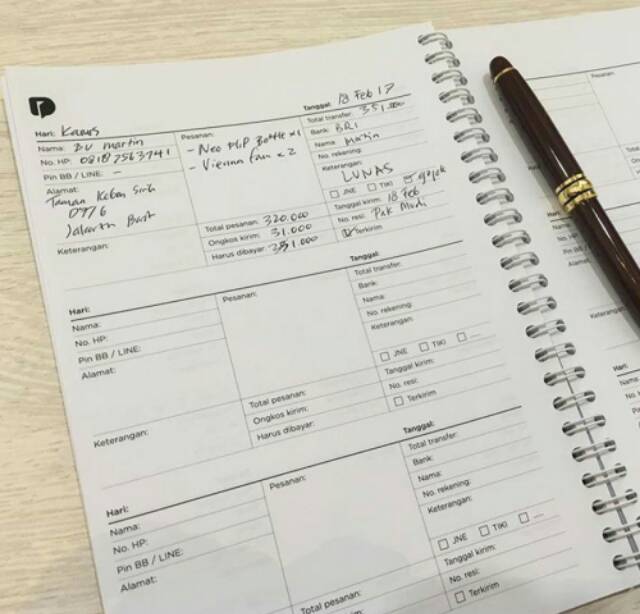 Hari: Kamis
Nama: BU Martin
No. HP: 08187563741
Pin BB / LINE: -
Alamat:
Taman Kebon Sirih
Jakarta Barat
Keterangan:
Pesanan:
- Neo Flip Bottle x1
- Vienna fan x2
Total pesanan: 320.000
Ongkos kirim: 31.000
Harus dibayar: 351.000
Tanggal: 18 Feb 17
Total transfer: 351.000
Bank: BRI
Nama: Martin
No. rekening:
Keterangan:
LUNAS
JNE TIKI gojek
Tanggal kirim: 18 Feb
No. resi: Pak Mudi
Terkirim
Hari:
Nama:
No. HP:
Pin BB / LINE:
Alamat:
Keterangan:
Pesanan:
Total pesanan:
Ongkos kirim:
Harus dibayar:
Tanggal:
Total transfer:
Bank:
Nama:
No. rekening:
Keterangan:
JNE TIKI ....
Tanggal kirim:
No. resi:
Terkirim
Hari:
Nama:
No. HP:
Pin BB / LINE:
Alamat:
Pesanan:
Total pesanan:
Tanggal:
Total transfer:
Bank:
Nama:
No. rekening:
Keterangan:
JNE TIKI ....
Tanggal kirim:
No. resi:
Terkirim
Pesanan:
Hari:
Nama:
No. HP:
Pin BB
Alamat:
Hari: